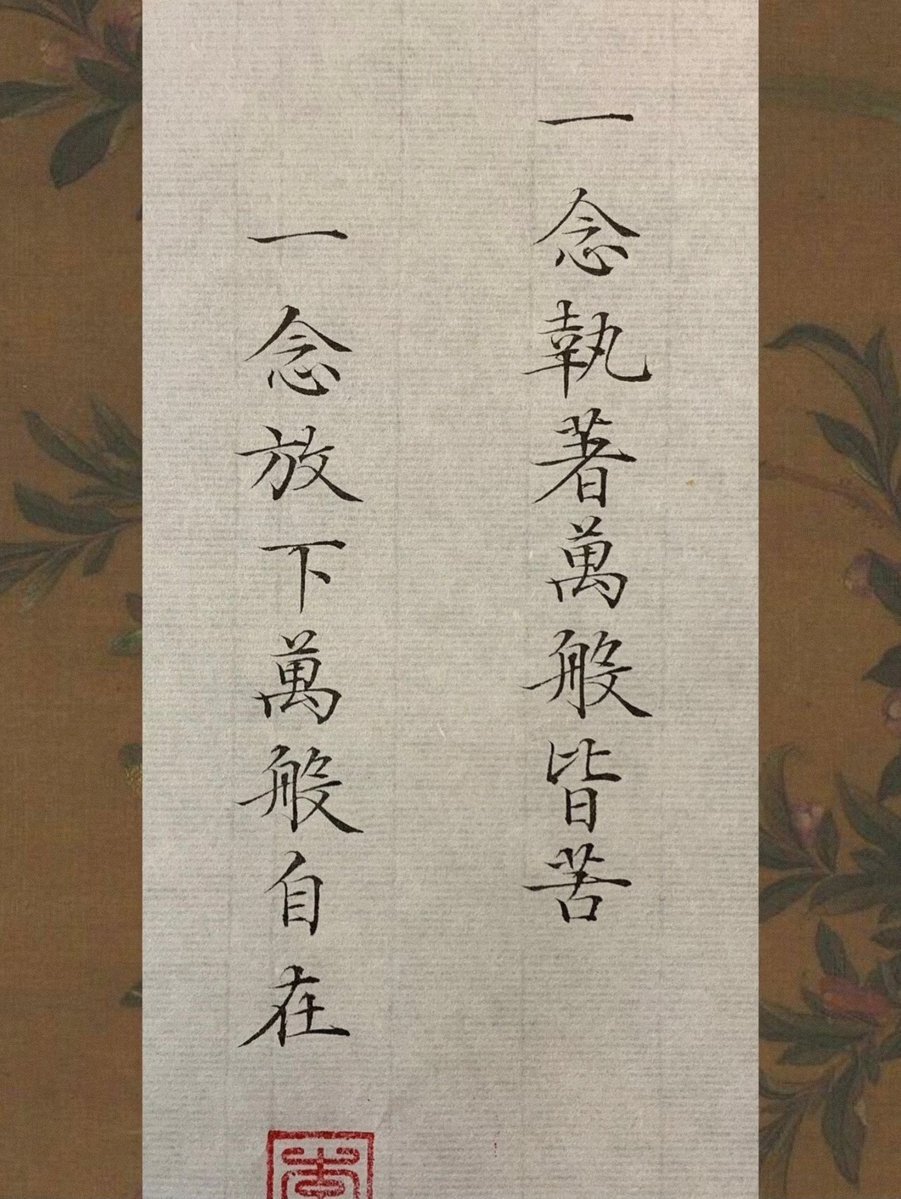 一念執著萬般皆苦
一念放下萬般自在